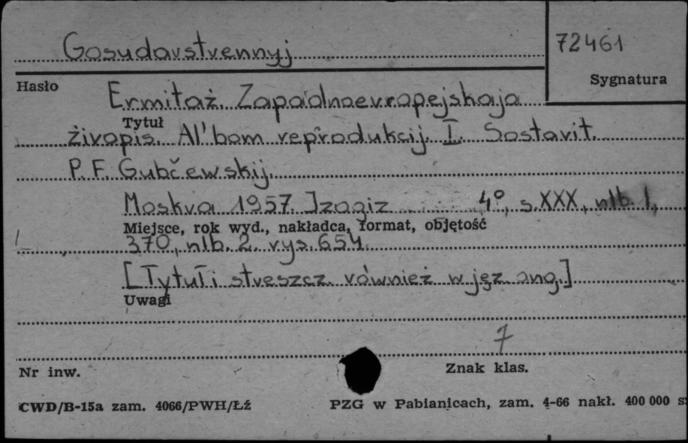 Gosudarstvennyj
72461
Hasło
Sygnatura
Ermitaż. Zapadnoevropejskaja
Tytuł
živopis. Al'bom reprodukcij. I. Sostavit.
P. F. Gubčewskij.
Moskva 1957 Izogiz 4°, s. XXX, nlb. 1,
Miejsce, rok wyd., nakładca, format, objętość
370, nlb. 2. rys. 654.
[Tytuł i streszcz. również w jęz. ang.]
Uwagi
7
Nr inw.
Znak klas.
CWD/B-15a zam. 4066/PWH/Łź
PZG w Pabianicach, zam. 4-66 nakł. 400 000